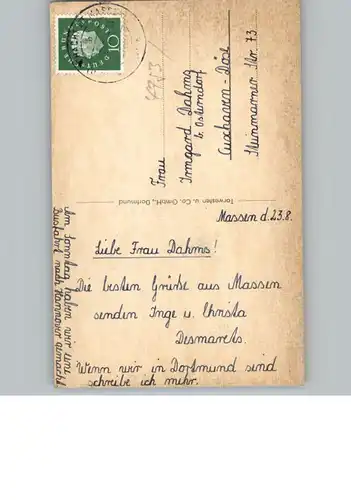 DEUTSCHE BUNDESPOST
10
4753/
Frau
Irmgard Dahms
b. Osterndorf
Cuxhaven-Döse
Steinmarner Str. 73
Torwesten u. Co. GmbH., Dortmund
Massen d. 23.8.
Liebe Frau Dahms!
Die besten Grüße aus Massen
senden Inge u. Christa
Desmarets.
Wenn wir in Dortmund sind
schreibe ich mehr.
Am Sonntag haben wir eine
Busfahrt nach Hannover gemacht.